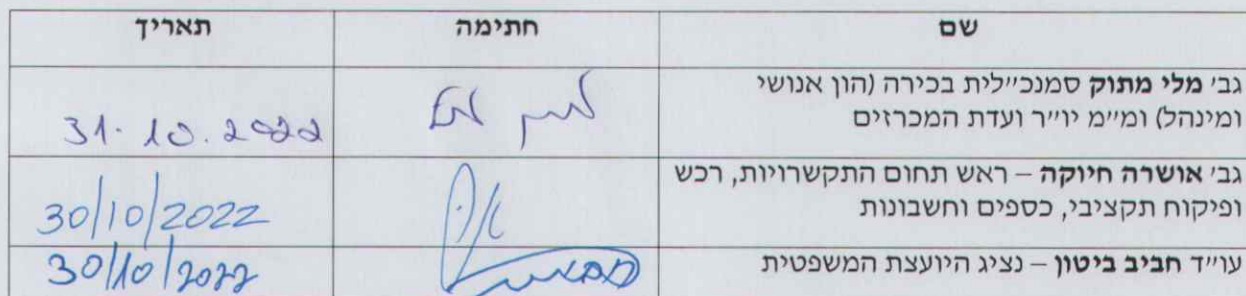 שם חתימה תאריך
גב׳ מלי מתוק סמנכ״לית בכירה (הון אנושי
ומינהל) ומ״מ יו״ר ועדת המכרזים
31.10.2022
גב׳ אושרה חיוקה – ראש תחום התקשרויות, רכש
ופיקוח תקציבי, כספים וחשבונות
30/10/2022
עו״ד חביב ביטון – נציג היועצת המשפטית
30/10/2022